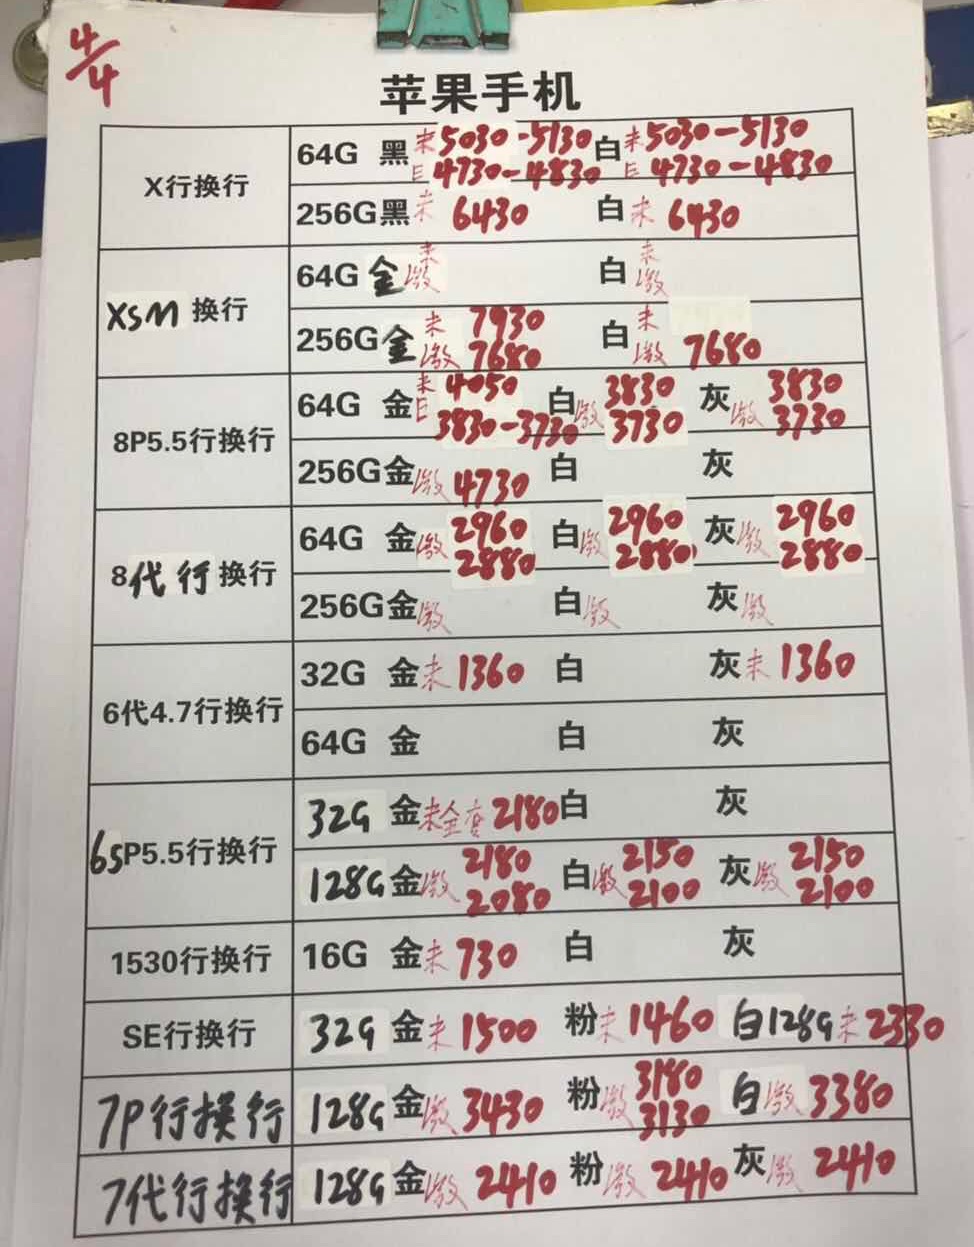 4/4
苹果手机
X行换行
64G 黑 未5030-5130 白 未5030-5130
4730-4830 4730-4830
256G黑 未 6430 白 未 6430
XSM 换行
64G 金 未 白 未
激 激
256G金 未 7930 白 未
激 7680 激 7680
8P5.5行换行
64G 金 未 4050 白 激 3830 灰 激 3830
3830-3730 3730 3730
256G金 激 4730 白 灰
8代行换行
64G 金 激 2960 白 激 2960 灰 激 2960
2880 2880 2880
256G金 激 白 激 灰 激
6代4.7行换行
32G 金 未 1360 白 灰 未 1360
64G 金 白 灰
6SP5.5行换行
32G 金 未全套 2180 白 灰
128G 金 激 2180 白 激 2150 灰 激 2150
2080 2100 2100
1530行换行
16G 金 未 730 白 灰
SE行换行
32G 金 未 1500 粉 未 1460 白128G 未 2330
7P行换行
128G 金 激 3430 粉 激 3180 白 激 3380
3130
7代行换行
128G 金 激 2410 粉 激 2410 灰 激 2410